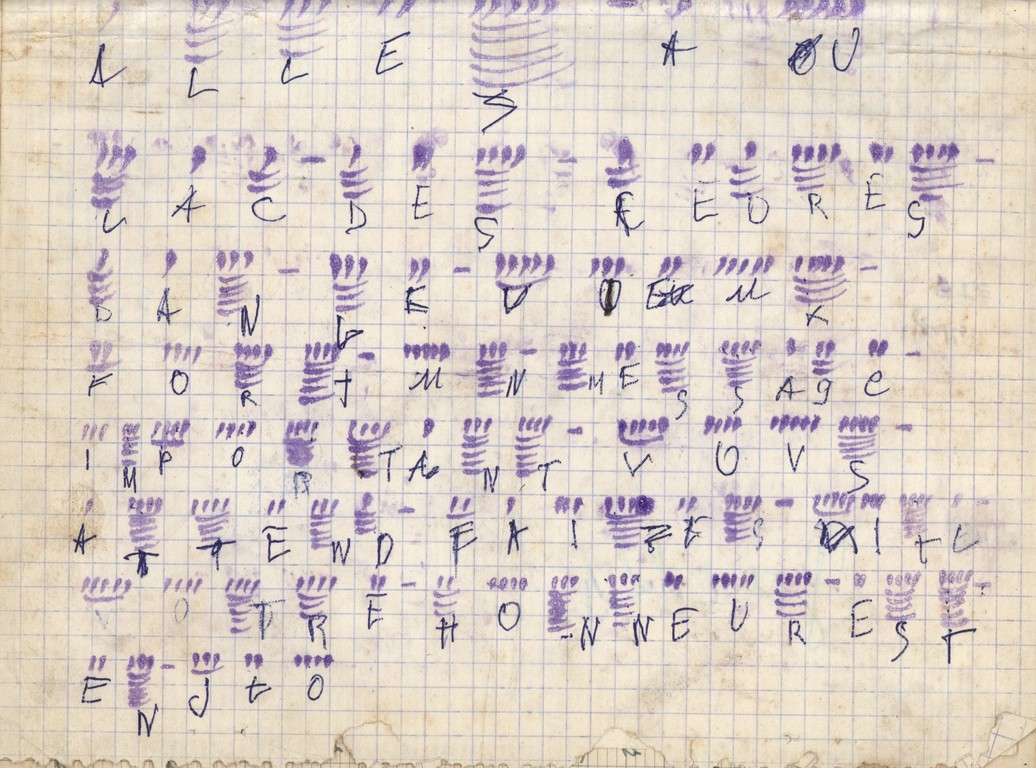 ALLES A OU
LAC DES CEDRES
DAN LE VOEUX
FORT UN MESSAge
IMPORTANT VOUS
ATTEND FAIZES ItL
VOTRE HONNEUR EST
EN JtO